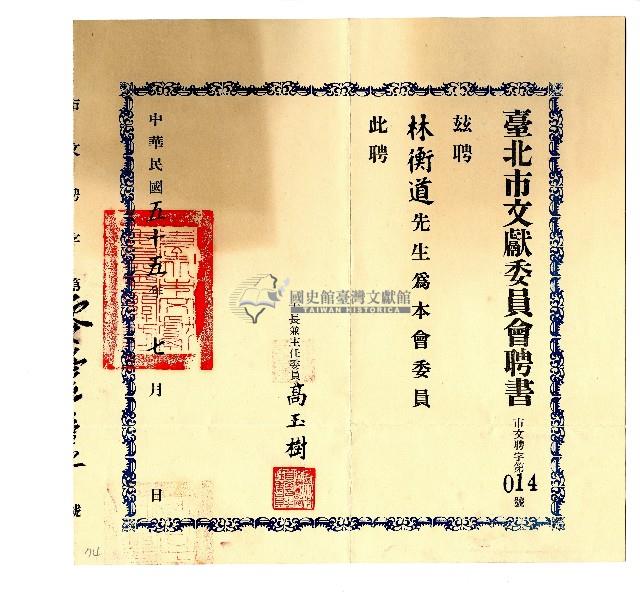 臺北市文獻委員會聘書
市文聘字第014號
玆聘
林衡道先生爲本會委員
此聘
市長兼主任委員 高玉樹
中華民國五十五年七月 日
市文聘字第 號
國史館臺灣文獻館
TAIWAN HISTORICA
74